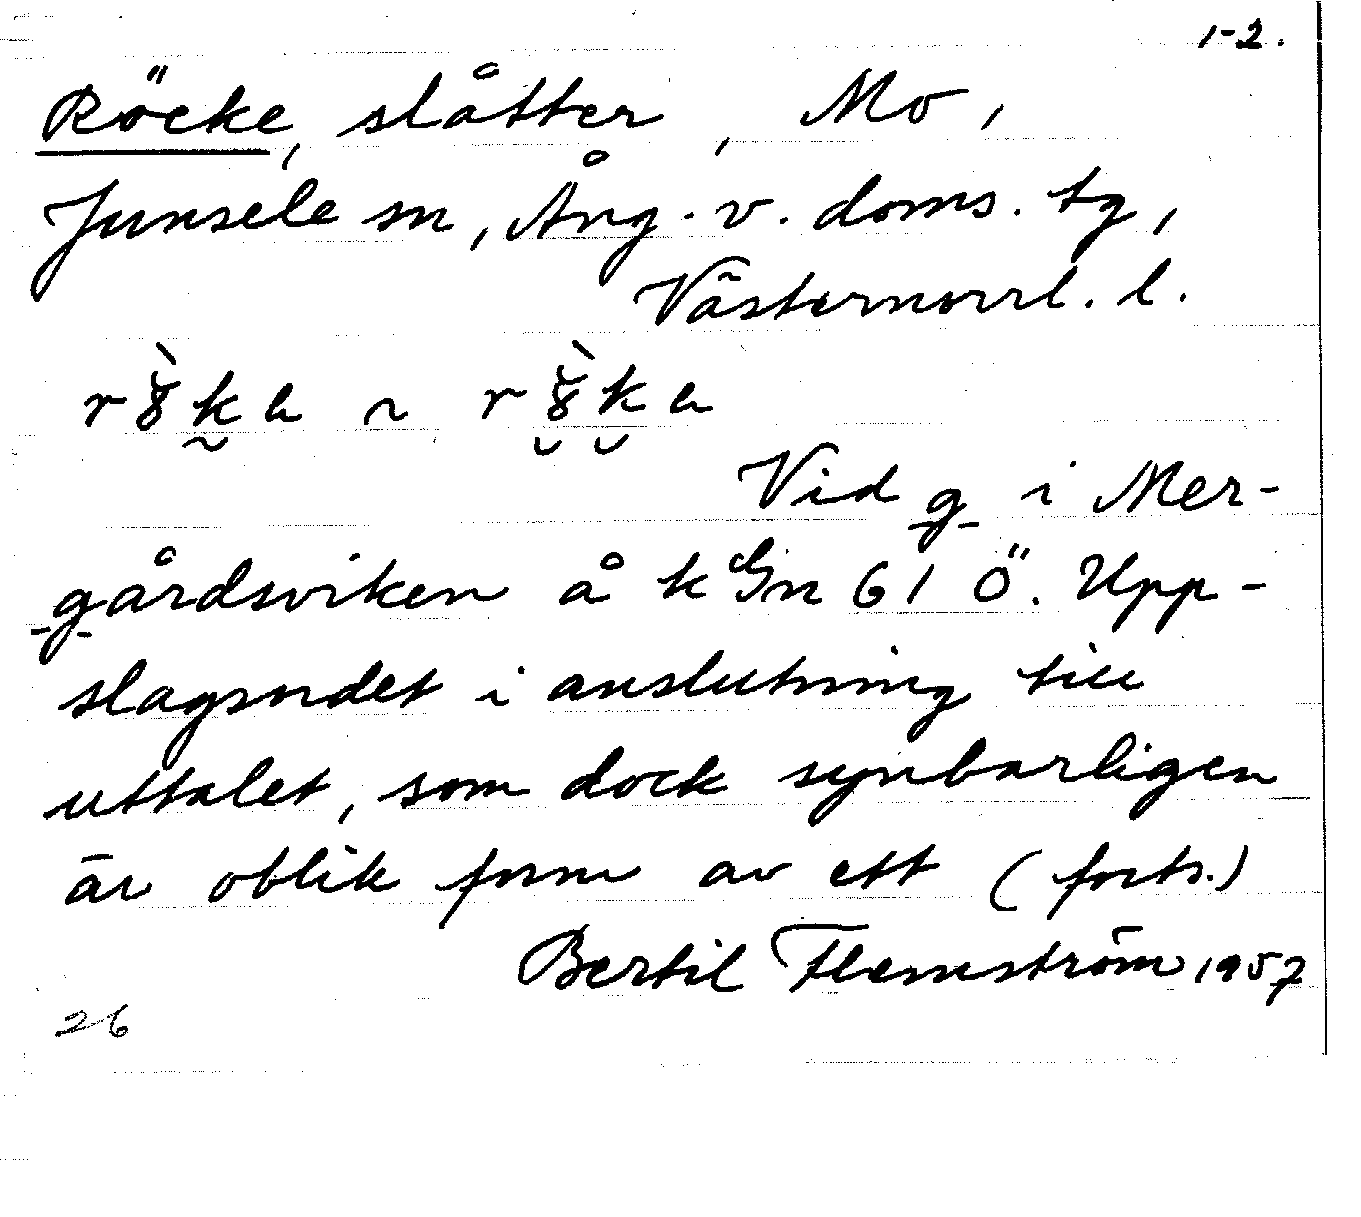 1-2.
Röcke, slåtter, Mo,
Junsele sn, Ång. v. doms. tg,
Västernorrl. l.
Vid g i Mer-
gårdsviken å kGn 61 Ö. Upp-
slagsordet i anslutning till
uttalet, som dock synbarligen
är oblik form av ett (forts.)
Bertil Flemström 1957
26